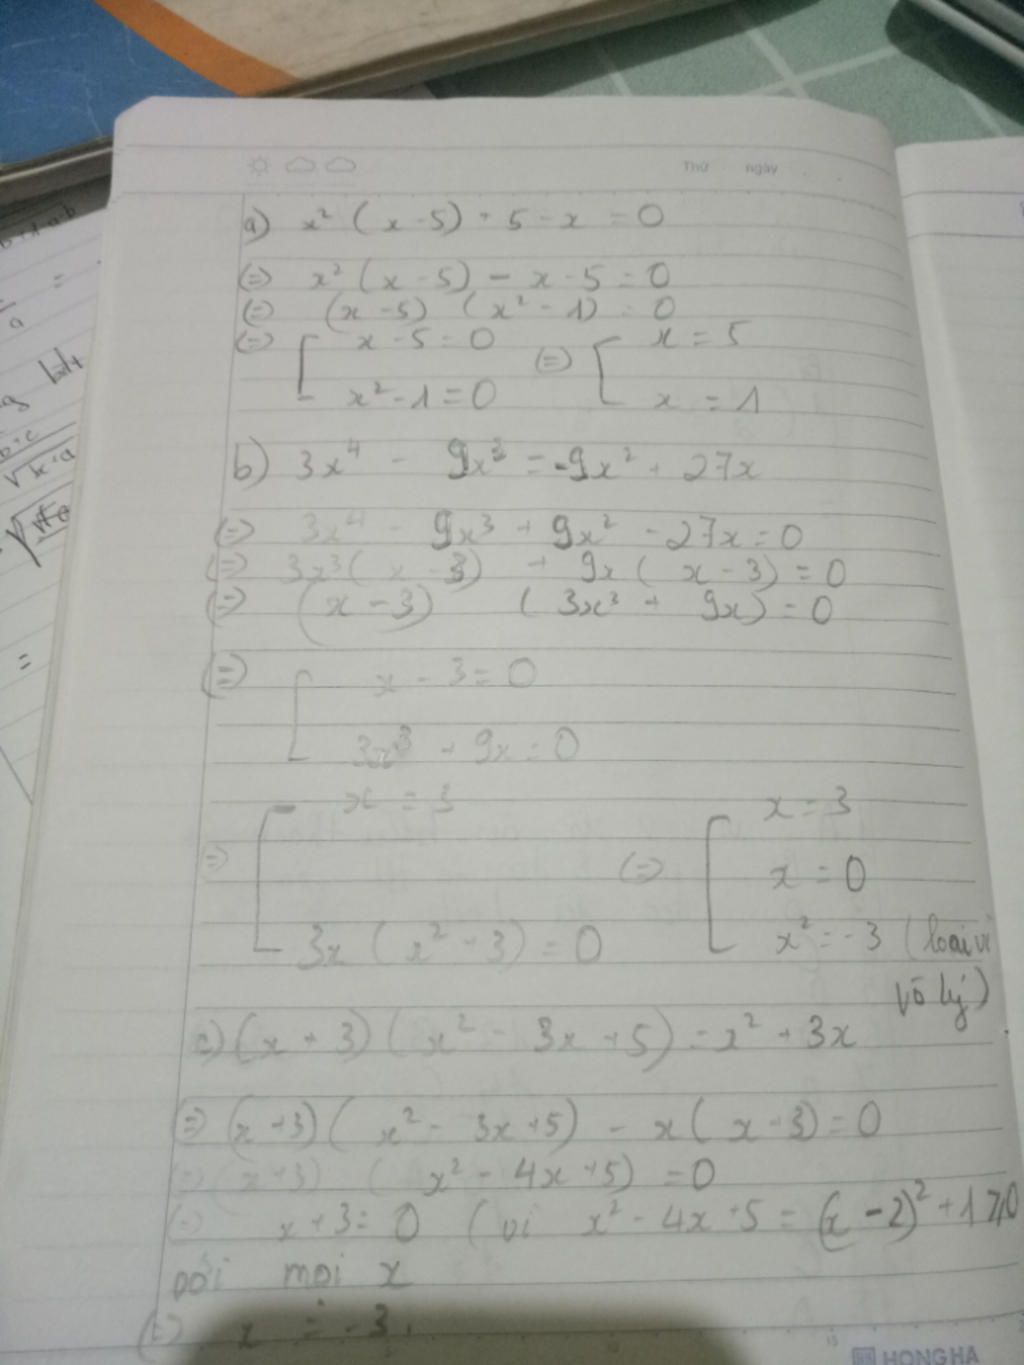 Thứ ngày
a) x² ( x - 5) + 5 - x = 0
(=) x² ( x - 5) - x - 5 = 0
(=) (x - 5) (x² - 1) = 0
(=) [ x - 5 = 0 (=) [ x = 5
x² - 1 = 0 x = 1
b) 3x⁴ - 9x³ = -9x² + 27x
(=) 3x⁴ - 9x³ + 9x² - 27x = 0
(=) 3x³ ( x - 3) + 9x ( x - 3) = 0
(=) (x - 3) ( 3x³ + 9x) = 0
(=) [ x - 3 = 0
3x³ + 9x = 0
x = 3 x = 3
=) [ (=) [ x = 0
3x ( x² + 3) = 0 x² = -3 (loại vì
vô lý)
c) (x + 3) ( x² - 3x + 5) = x² + 3x
=) (x + 3) ( x² - 3x + 5) - x ( x + 3) = 0
=) (x + 3) ( x² - 4x + 5) = 0
(=) x + 3 = 0 (vì x² - 4x + 5 = (x - 2)² + 1 ≥ 0
với mọi x
(=) x = -3.
HONG HA